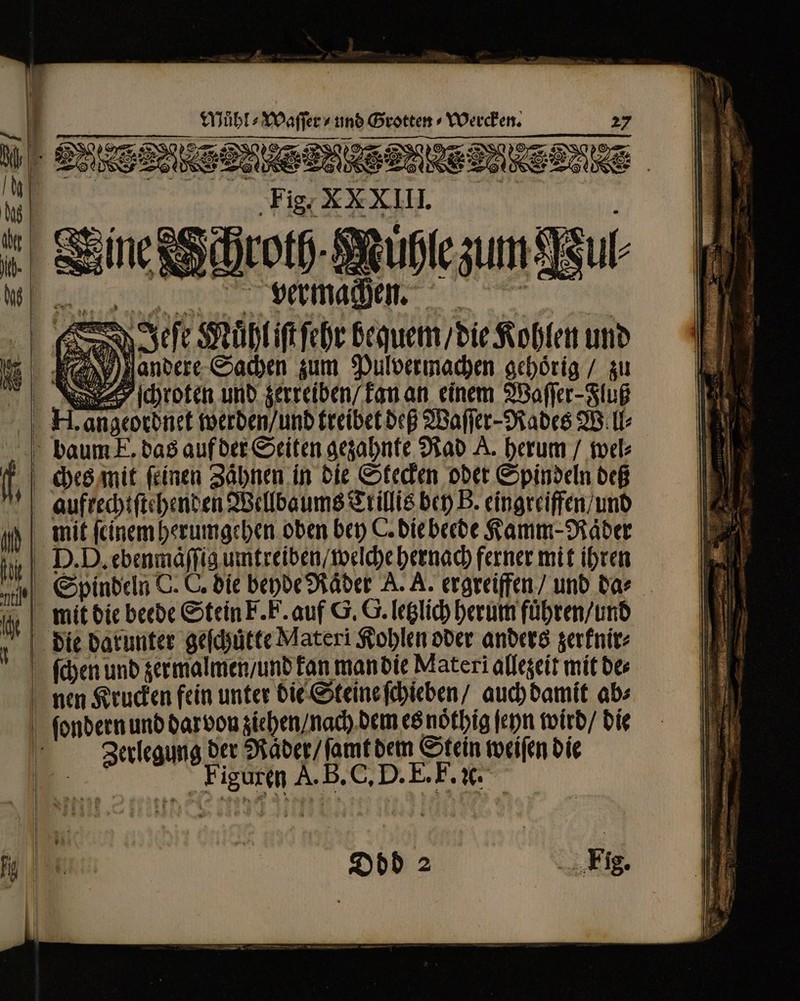 Mühl-Wasser- und Grotten-Wercken. 27
Fig. XXXIII.
Eine Schroth-Mühle zum Pul-
vermachen.
Diese Mühl ist sehr bequem/die Kohlen und
andere Sachen zum Pulvermachen gehörig / zu
schroten und zerreiben/kan an einem Wasser-Fluß
H. angeordnet werden/und treibet deß Wasser-Rades Well-
baum E. das auf der Seiten gezahnte Rad A. herum / wel-
ches mit seinen Zähnen in die Stecken oder Spindeln deß
aufrechtstehenden Wellbaums Trillis bey B. eingreiffen/und
mit seinem herumgehen oben bey C. die beede Kamm-Räder
D.D. ebenmässig umtreiben/welche hernach ferner mit ihren
Spindeln C. C. die beyde Räder A. A. ergreiffen / und da-
mit die beede Stein F.F. auf G. G. letzlich herum führen/und
die darunter geschütte Materi Kohlen oder anders zerknir-
schen und zermalmen/und kan man die Materi allezeit mit de-
nen Krucken fein unter die Steine schieben / auch damit ab-
sondern und darvon ziehen/nach dem es nöthig seyn wird/ die
Zerlegung der Räder/samt dem Stein weisen die
Figuren A. B. C. D. E. F. ꝛc.
Ddd 2 Fig.